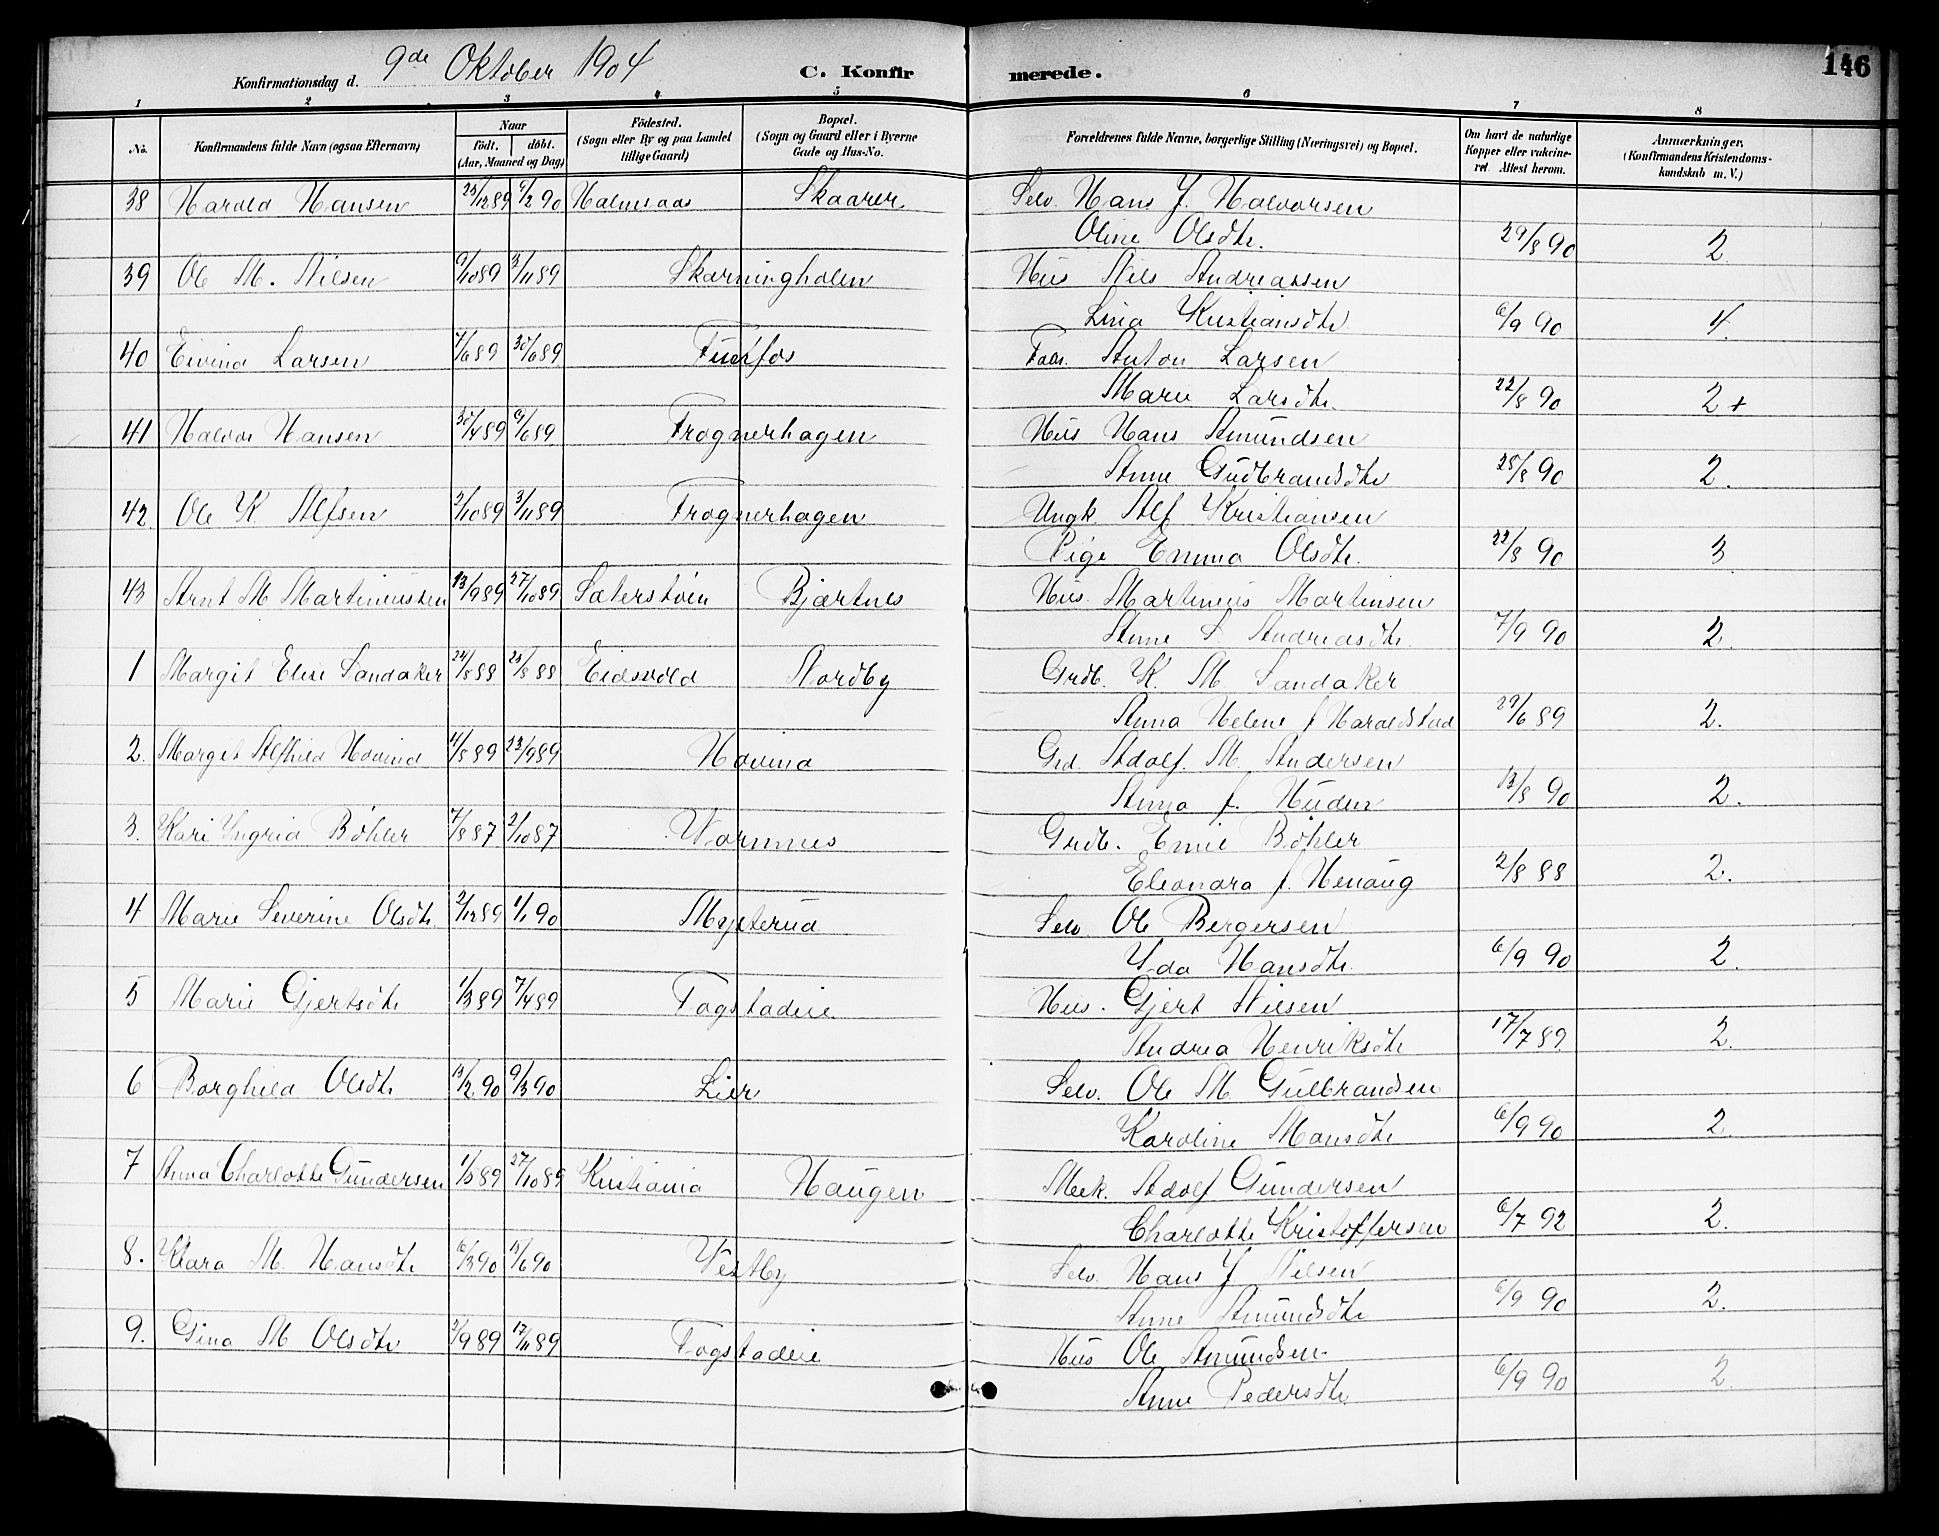 Konfirmationsdag d. 9de Oktober 1904 C. Konfirmerede. 146
1 2 3 4 5 6 7 8
No. Konfirmandens fulde Navn (ogsaa Efternavn) Naar født. døbt. (Aar, Maaned og Dag) Fødested. (Sogn eller By og paa Landet tillige Gaard) Bopæl. (Sogn og Gaard eller i Byerne Gade og Hus-No. Forældrenes fulde Navne, borgerlige Stilling (Næringsvei) og Bopæl. Om havt de naturlige Kopper eller vakcineret. Attest herom. Anmærkninger. (Konfirmandens Kristendomskundskab m. V.)
38 Harald Hansen 25/12 89 9/2 90 Holmsaas Skaarer Selv. Hans J. Halvorsen
Oline Olsdtr. 29/8 90 2
39 Ole M. Nilsen 9/10 89 3/11 89 Skarningholen Hus Nils Andreassen
Lina Kristiansdtr. 6/9 90 4.
40 Eivind Larsen 7/6 89 30/6 89 Funfos Fabr. Anton Larsen
Marie Larsdtr. 22/8 90 2 +
41 Halvor Hansen 30/4 89 9/6 89 Frognerhagen Hus Hans Amundsen
Anne Gudbrandsdtr 25/8 90 2.
42 Ole K Alfsen 2/10 89 3/11 89 Frognerhagen Ungk. Alf Kristiansen
Pige Emma Olsdtr. 22/8 90 3
43 Arnt M Martiniussen 13/9 89 27/10 89 Sæterstøen Bjørtnes Hus. Martinius Martinsen
Anne S Andreasdtr. 7/9 90 2.
1 Margit Elise Sandaker 24/8 88 Eidsvold Nordby Grdb. K. M Sandaker
Anna Helene f Haraldstad 29/6 89 2.
2. Margit Alfhild Hovind 11/8 89 22/9 89 Hovind Grd. Adolf. M. Andersen
Anna f. Huden 13/8 90 2.
3. Kari Yngrid Bøhler 7/8 87 2/10 87 Wormnes Grdb. Emil Bøhler
Eleonora f. Henaug 2/8 88 2.
4 Marie Severine Olsdtr. 2/12 89 1/1 90 Mysterud Selv. Ole Bergersen
Yda Hansdtr. 6/9 90 2.
5 Marie Gjertsdtr 1/3 89 7/4 89 Fagstadeie Hus. Gjert Nilsen
Andrea Henriksdtr 17/7 89. 2.
6 Borghild Olsdtr 13/2 90 9/3 90 Lier Selv. Ole M Gulbrandsen
Karoline Mansdtr 6/9 90 2.
7 Anna Charlotte Gundersen 27/10 89 Kristiania Haugen Mek. Adolf Gundersen
Charlotte Kristoffersen 6/7 92 2.
8. Klara M. Hansdtr 6/3 90 15/6 90 Vestby Selv. Hans J Nilsen
Anne Amundsdtr 6/9 90 2.
9. Gina M Olsdtr 3/9 89 17/11 89 Fagstadeie Hus Ole Amundsen
Anne Pedersdtr. 6/9 90 2